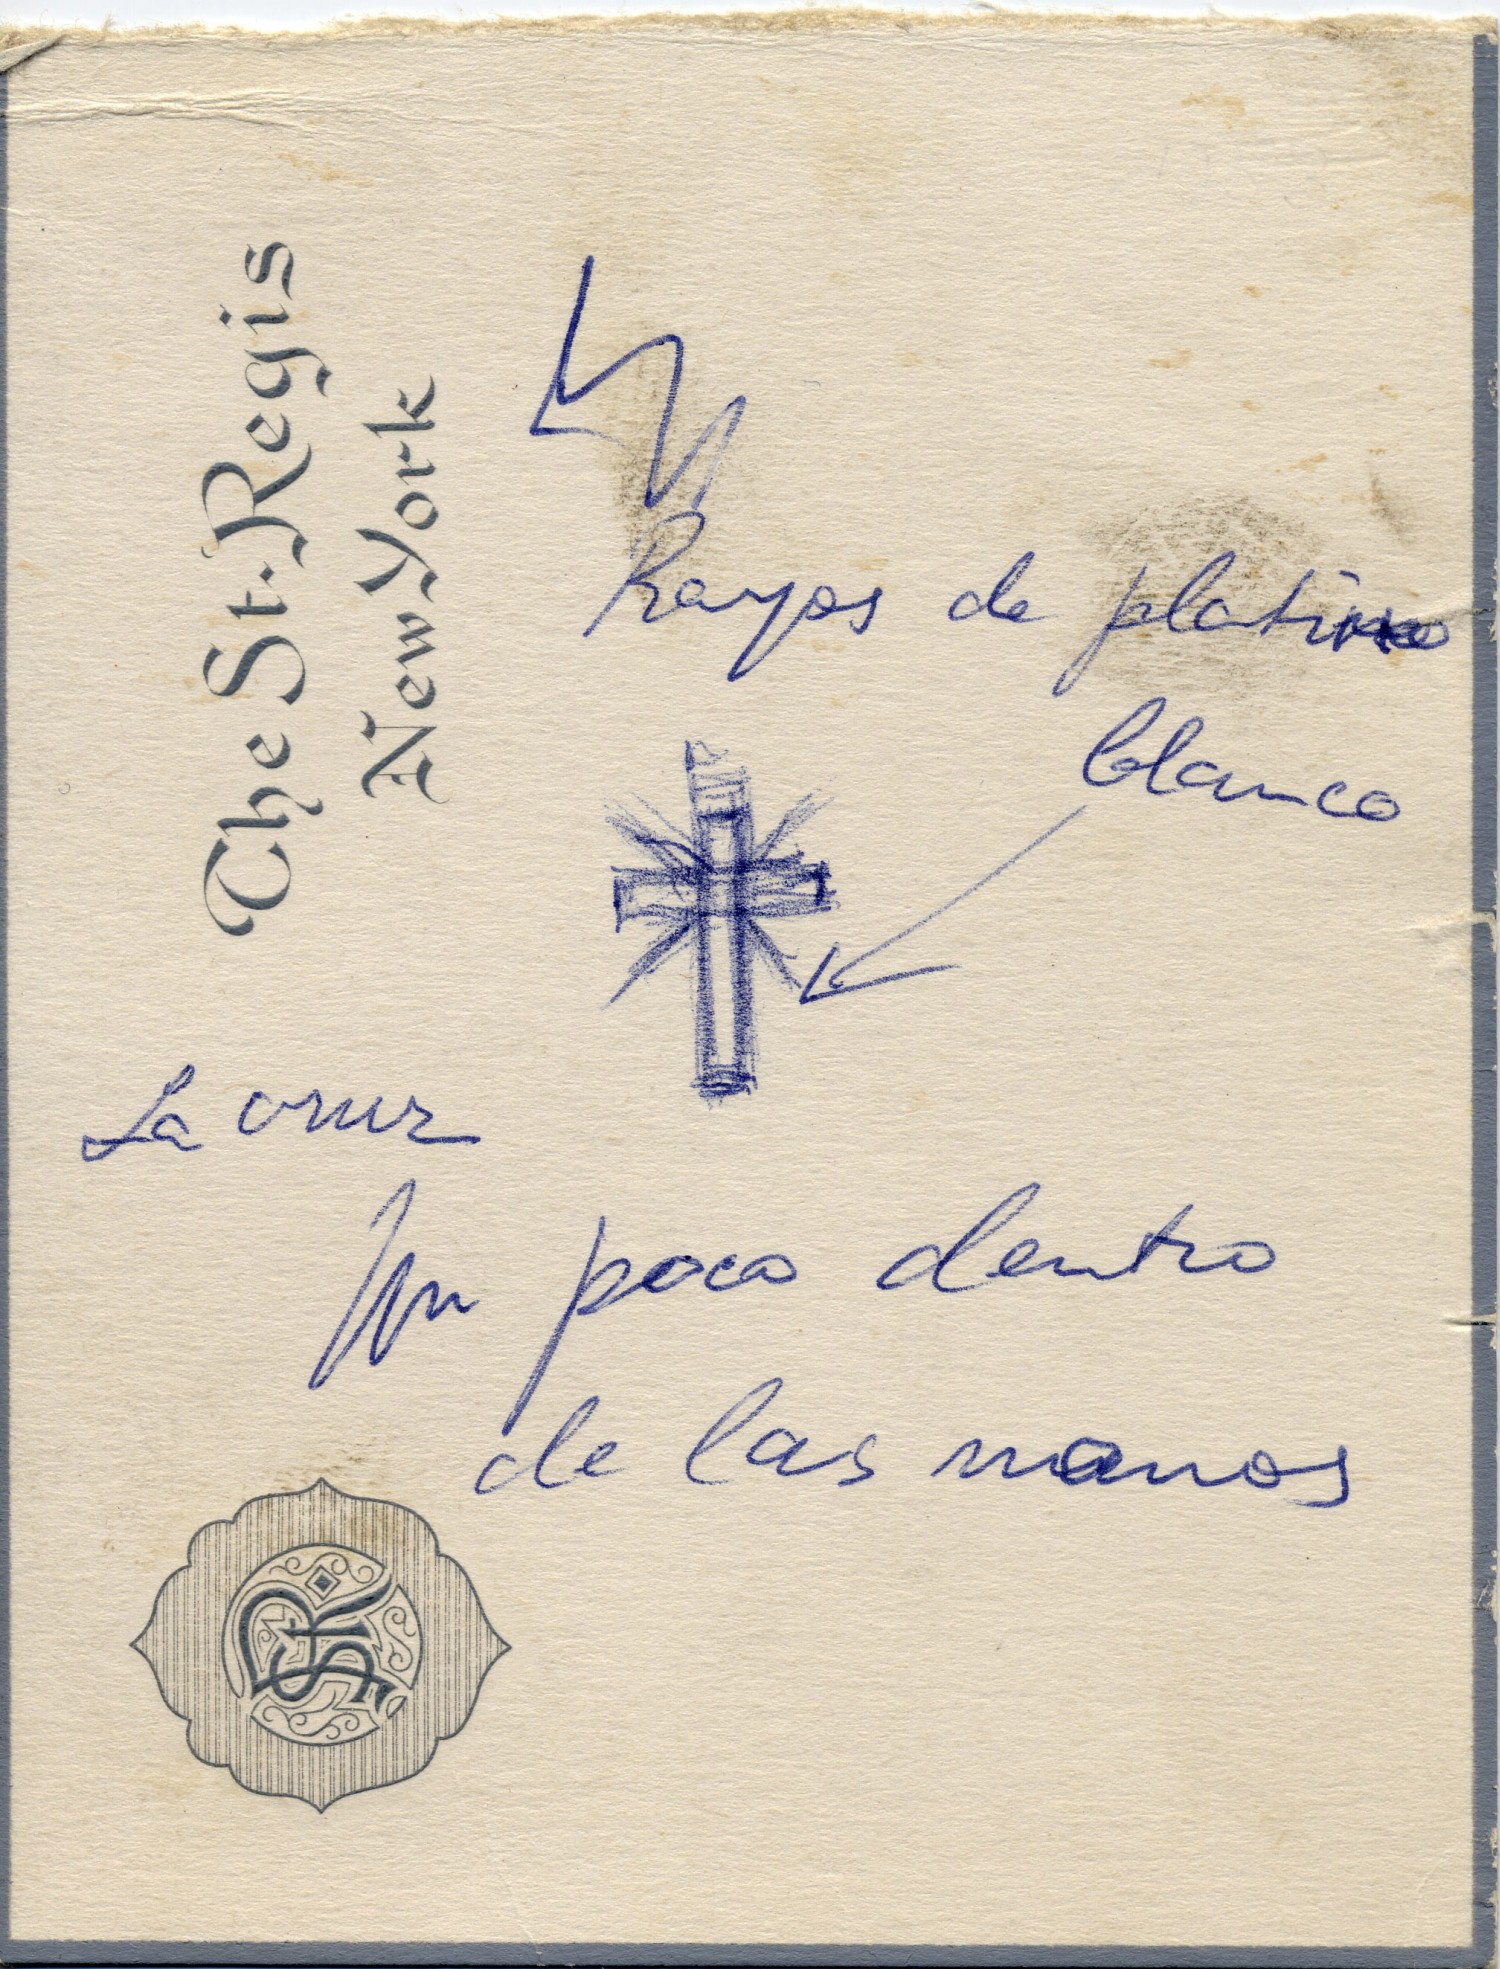 The St. Regis
New York
Rayos de platino
blanco
La cruz
un poco dentro
de las manos